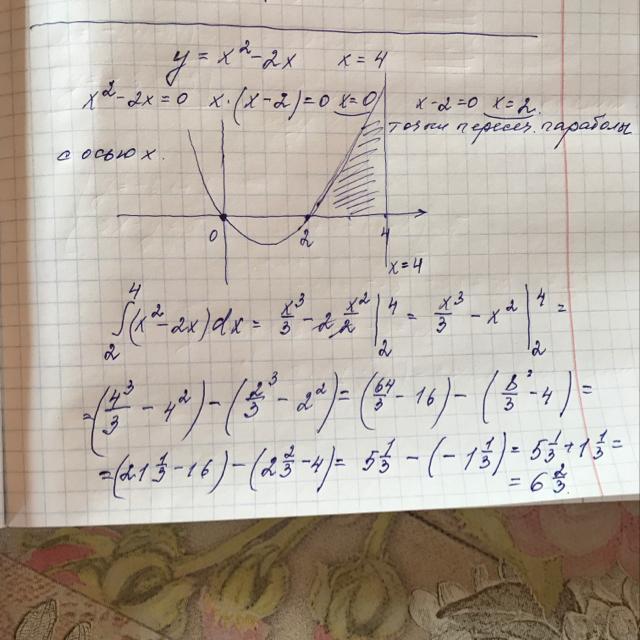 y = x² - 2x    x = 4
x² - 2x = 0  x·(x - 2) = 0  x = 0  x - 2 = 0  x = 2.
точки перес. параболы
с осью x.
0  2  4
x = 4
∫₂⁴ (x² - 2x) dx = x³/3 - 2 x²/2 |₂⁴ = x³/3 - x² |₂⁴ =
= (4³/3 - 4²) - (2³/3 - 2²) = (64/3 - 16) - (8/3 - 4) =
= (21 1/3 - 16) - (2 2/3 - 4) = 5 1/3 - (-1 1/3) = 5 1/3 + 1 1/3 =
= 6 2/3.